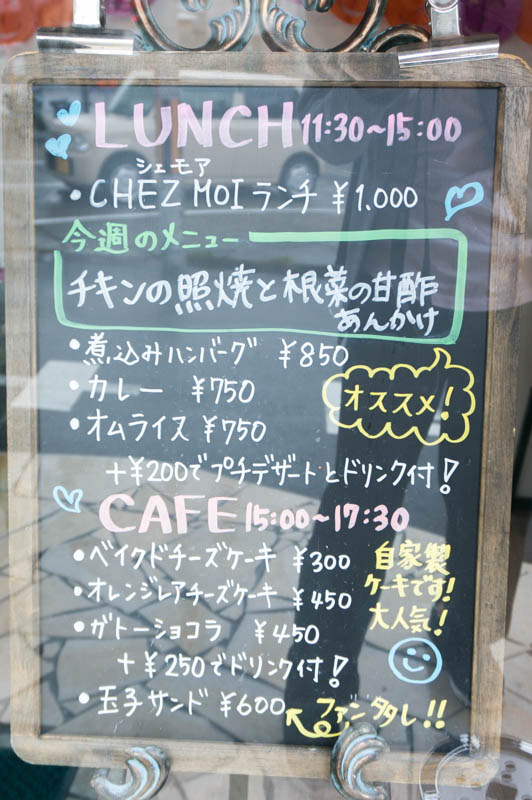 LUNCH 11:30~15:00
シェモア
・CHEZ MOI ランチ ¥1,000
今週のメニュー
チキンの照焼と根菜の甘酢
あんかけ
・煮込みハンバーグ ¥850
・カレー ¥750
・オムライス ¥750
オススメ!
+¥200でプチデザートとドリンク付!
CAFE 15:00~17:30
・ベイクドチーズケーキ ¥300
・オレンジレアチーズケーキ ¥450
・ガトーショコラ ¥450
自家製
ケーキです!
大人気!
+¥250でドリンク付!
・玉子サンド ¥600
ファンタタレ!!